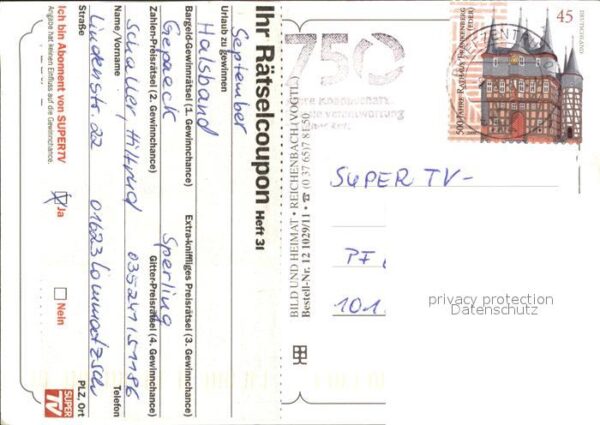 Ihr Rätselcoupon Heft 31
Urlaub zu gewinnen
September
Bargeld-Gewinnrätsel (1. Gewinnchance)
Halsband
Extra-kniffliges Preisrätsel (3. Gewinnchance)
Sperling
Zahlen-Preisrätsel (2. Gewinnchance)
Gepaeck
Gitter-Preisrätsel (4. Gewinnchance)
Name/Vorname
Schaller, Hiltrud
Telefon
035241151186
Straße
Lindenstr. 22
PLZ, Ort
01623 Lommatzsch
Ich bin Abonnent von SUPERTV
Angabe hat keinen Einfluss auf die Gewinnchance.
Ja
Nein
SUPER
TV
BILD UND HEIMAT • REICHENBACH (VOGTL)
Bestell-Nr. 12 1029/11
750
45
DEUTSCHLAND
SUPER TV-
PF
10 1
privacy protection
Datenschutz